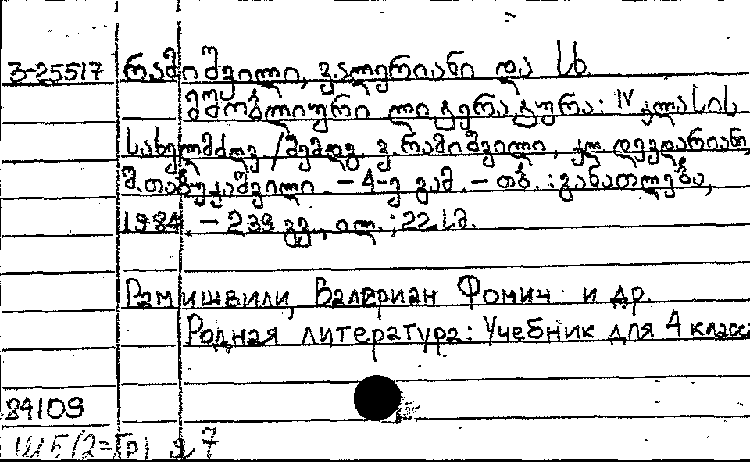 3-25517 რამიშვილი, ვალერიანი და სხ.
მშობლიური ლიტერატურა: IV კლასის
სახელმძღვ. / შემდგ. ვ. რამიშვილი,
მ. თაბუკაშვილი. – 4-ე გამ. – თბ. : განათლება,
1984. – 239 გვ., ილ. ; 22 სმ.
Рамишвили, Валериан Фомич и др.
Родная литература: Учебник для 4 класса
84109
Ш5(2=Гр)я7